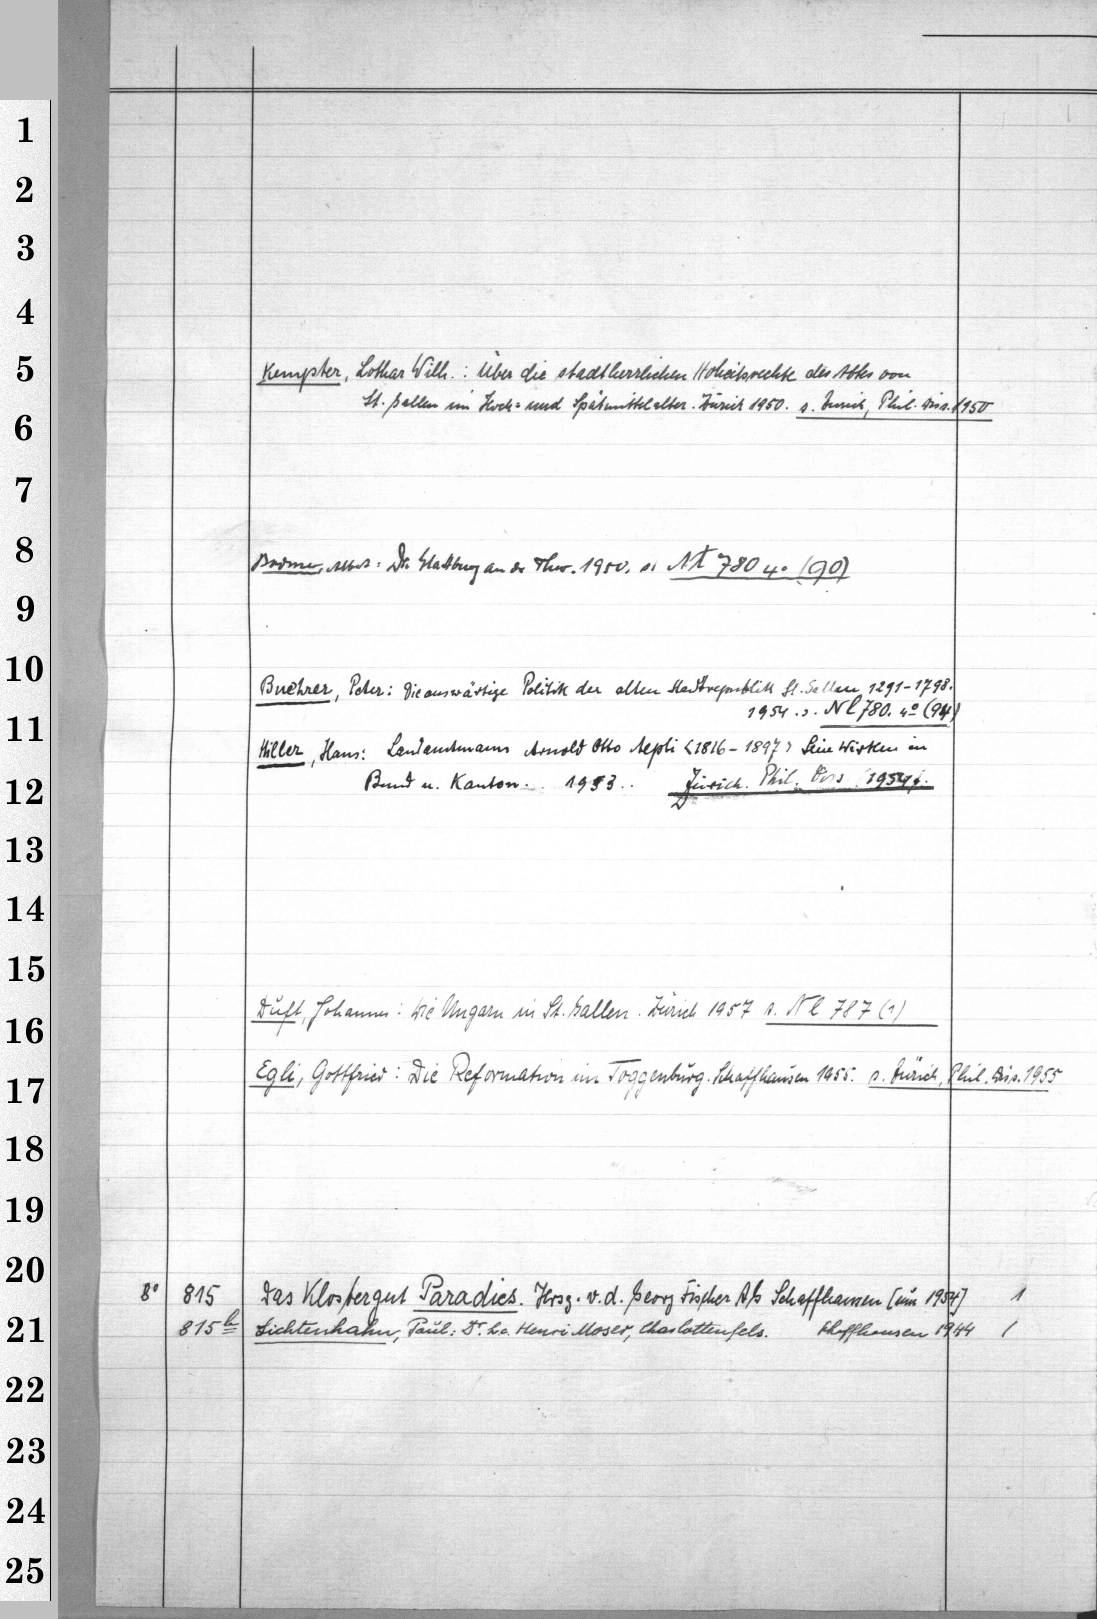 1
2
3
4
5
Kempter, Lothar Wilh.: Über die stadtherrlichen Hoheitsrechte des Abtes von
St. Gallen im Hoch= und Spätmittelalter. Zürich 1950. s. Zürich, Phil. Diss. 1950
6
7
8
Bodmer, Albert: Die Glattburg an der Thur. 1950. s. Nl 780 4° (90)
9
10
Buehrer, Peter: Die auswärtige Politik der alten Stadtrepublik St. Gallen 1291-1798.
1954. s. Nl 780. 4° (94)
11
Hiller, Hans: Landammann Arnold Otto Aepli <1816-1897> Sein Wirken in
Bund u. Kanton. 1953. Zürich. Phil. Diss 1954
12
13
14
15
16
Duft, Johannes: Die Ungarn in St. Gallen. Zürich 1957 s. Nl 787 (1)
17
Egli, Gottfried: Die Reformation im Toggenburg. Schaffhausen 1955. s. Zürich, Phil. Diss. 1955
18
19
20
8° 815 Das Klostergut Paradies. Hrsg. v. d. Georg Fischer AG Schaffhausen [um 1954] 1
21
815b Lichtenhahn, Paul: Dr. h.c. Henri Moser, Charlottenfels. Schaffhausen 1944 1
22
23
24
25